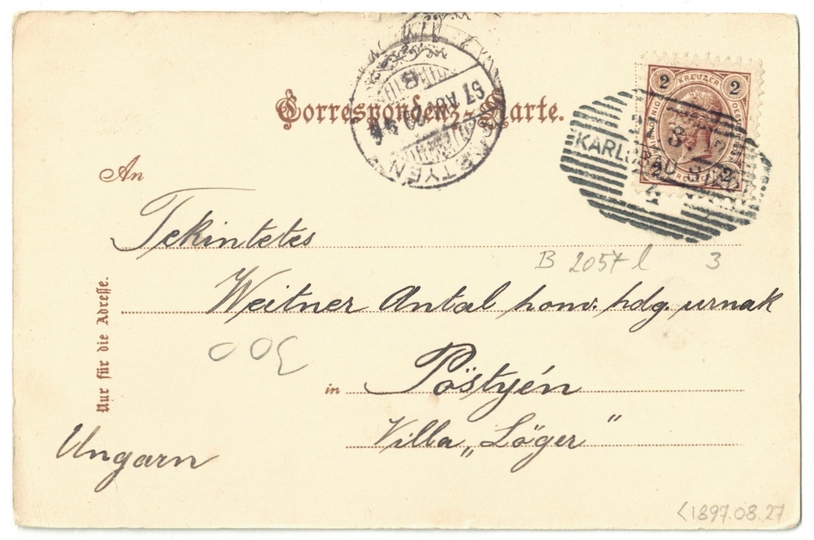 Correspondenz-Karte.
2 KREUZER 2
An
KARLSBAD
Tekintetes
B 2057 l 3
Weitner Antal honv. hdg. urnak
300
in Pöstyén
Villa „Löger”
Ungarn
Nur für die Adresse.
<1897.08.27